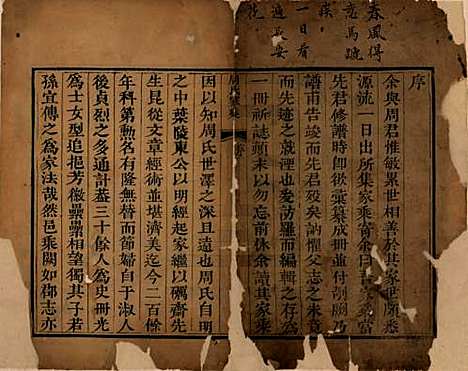 序
余與周君惟敏累世相善於其家世頗悉
源流一日出所集家乘寄余曰吾家乘當
先君修譜時卽欲彙纂成冊並付剞劂乃
譜甫告竣而先君歿矣訥懼父志之未竟
而先迹之就湮也爰訪羅而編輯之存爲
一冊祈誌顚末以勿忘前休余讀其家乘
因以知周氏世澤之深且遠也周氏自明
之中葉陵東公以明經起家繼以礪齋先
生昆從文章經術並堪濟美迄今二百餘
年科第勲名有隆無替而節婦自于淑人
後貞烈之多通計盖三十餘人爲史冊光
爲士女型追挹芳徽纍纍相望獨其子若
孫宣傳之爲家法哉然邑乘闕如郡志亦
春風得
意馬蹏
疾
一日看
遍長安
花